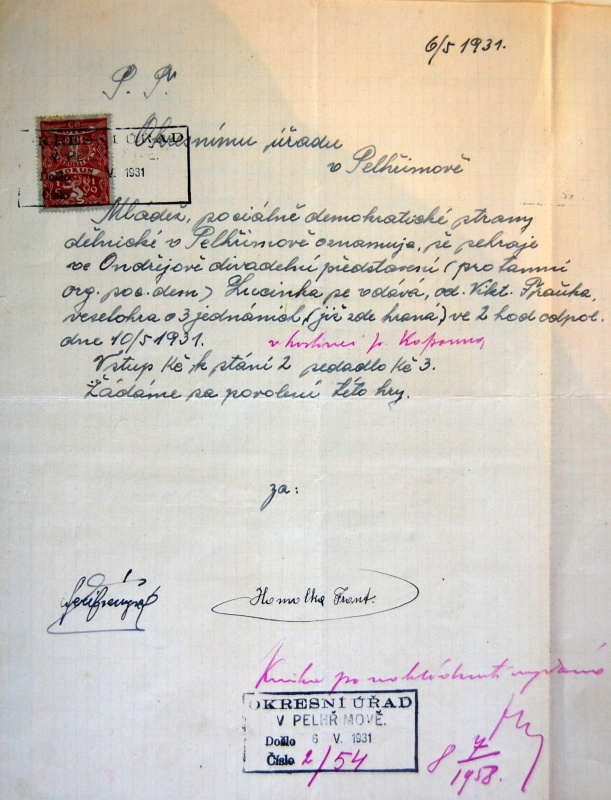 6/5 1931.
P. P.
Okresnímu úřadu
v Pelhřimově
OKRESNÍ ÚŘAD
V PE
Došlo V. 1931
Číslo
Mládež, sociálně demokratické strany
dělnické v Pelhřimově oznamuje, že sehraje
ve Ondřejově divadelní představení (pro tamní
org. soc. dem) Lucinka se vdává, od. Vikt. Brauna,
veselohra o 3 jednáních, (již zde hraná) ve 2 hod odpol.
dne 10/5 1931. v hostinci p. Kapouna
Vstup Kč, k stání 2 sedadlo Kč 3.
Žádáme za povolení této hry.
za:
Homolka Frant.
Kniha po nahlédnutí
OKRESNÍ ÚŘAD
V PELHŘIMOVĚ.
Došlo 6 V. 1931
Číslo 2/54
8 7/1958.